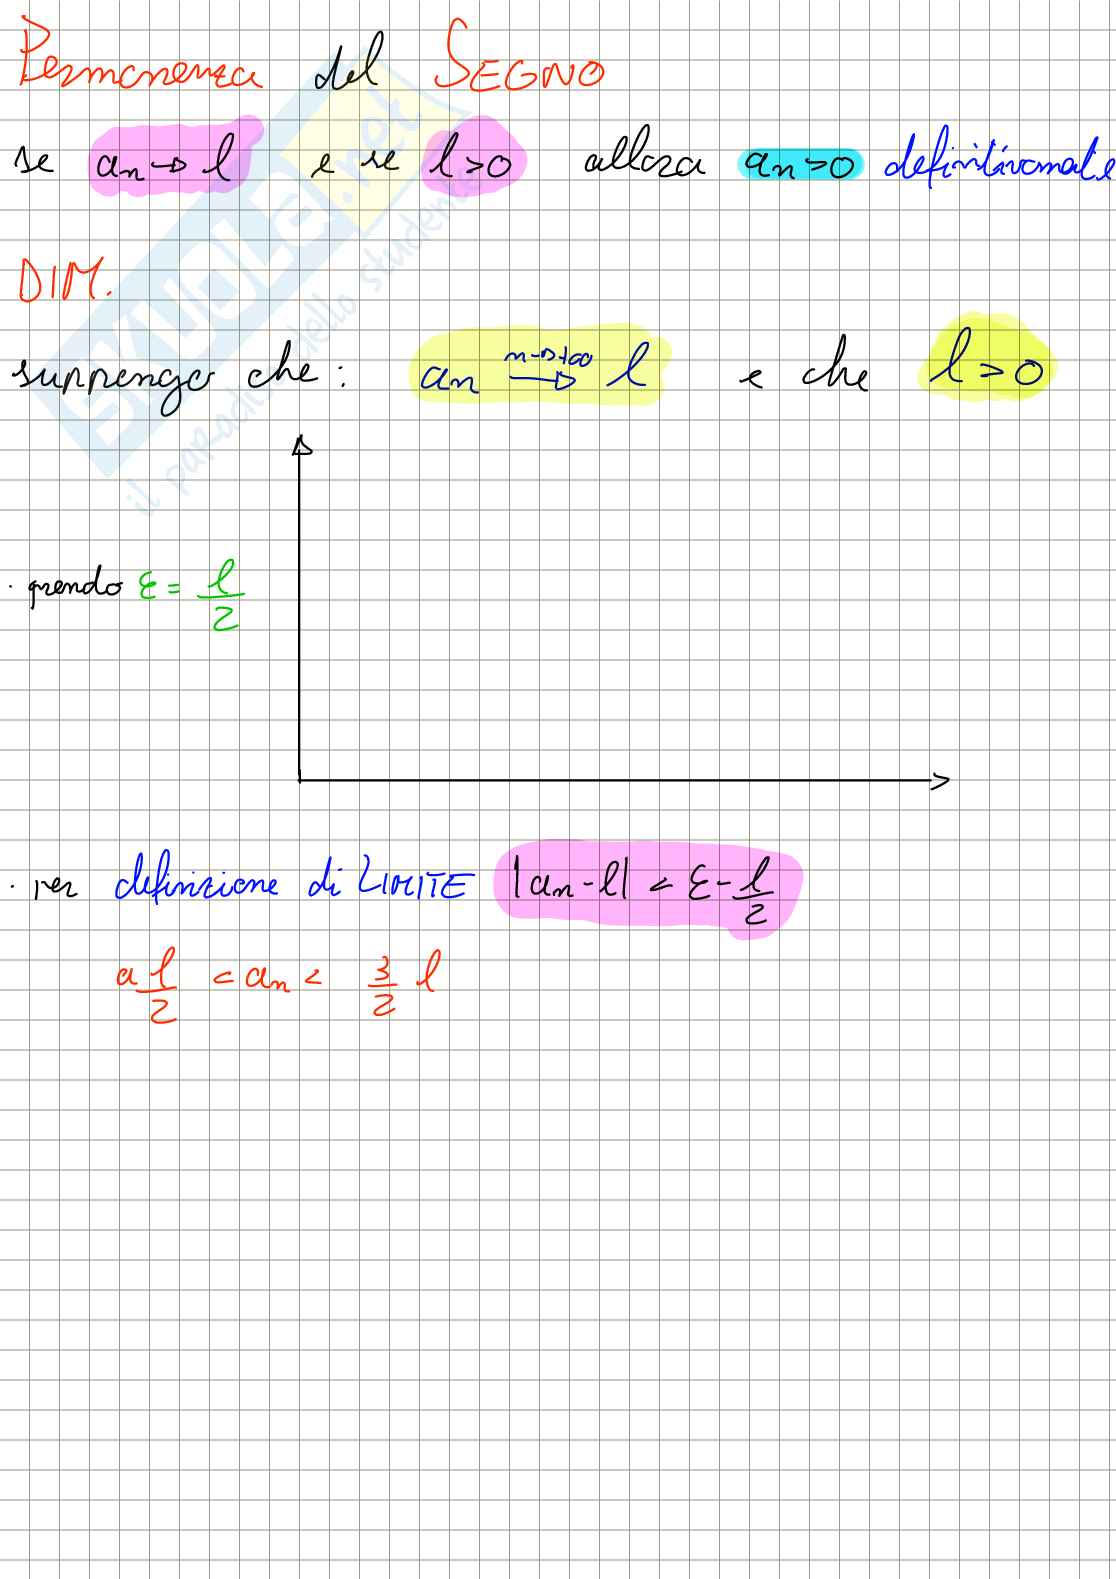 Permanenza del SEGNO
se an → l e se l > 0 allora an > 0 definitivamate
DIM.
suppengo che: an n→+∞ → l e che l > 0
· prendo ε = l/2
· per definizione di LIMITE |an - l| < ε - l/2
a l/2 < an < 3/2 l
SKUOLA.net
il paradiso dello studente